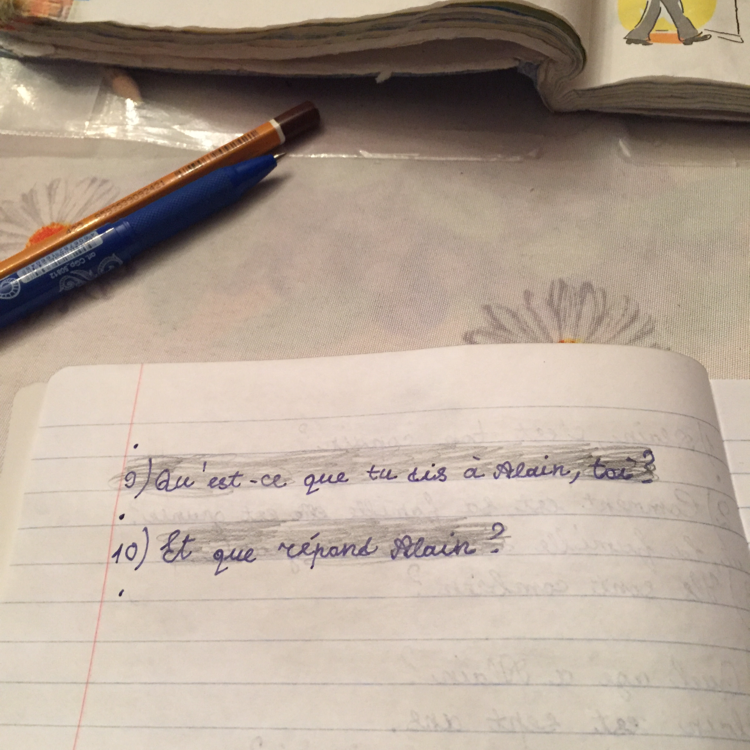 9) Qu'est-ce que tu dis à Alain, toi?
10) Et que répond Alain?